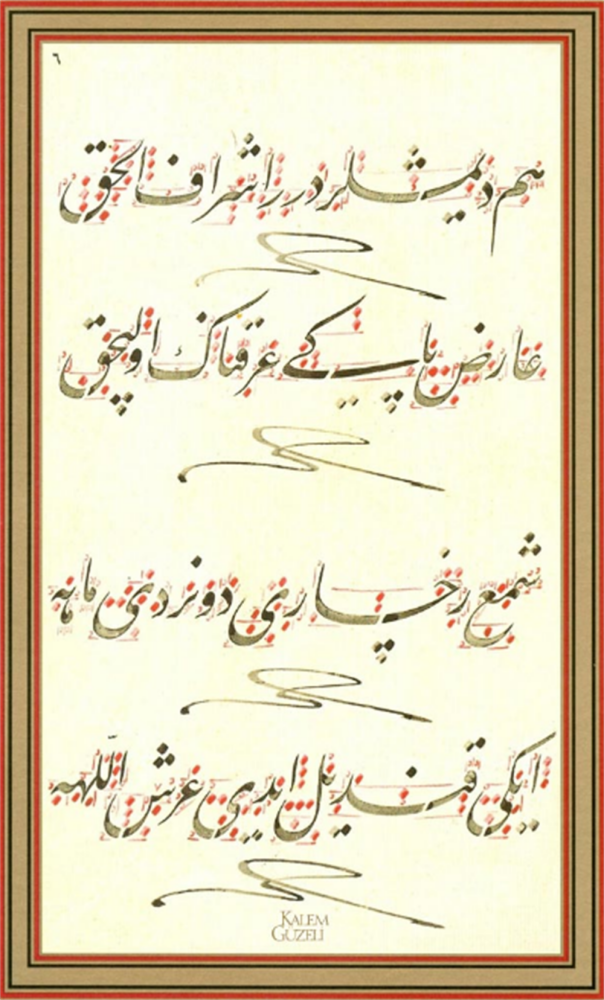 ٦
هم دیمشلردر اشراف الحق
عارض پاکی عرقناک اولیجق
شمع رخساری دونردی ماهه
ایکی قندیل ایدی عرش اللهه
KALEM
GÜZELİ